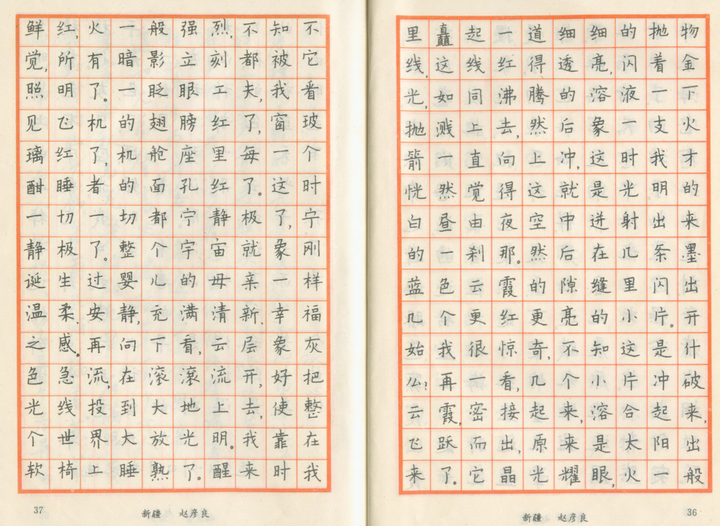 里矗起一道细细的抛物
线。这线红得透亮,闪着金
光,如同沸腾的溶液一下
抛溅上去,然后象一支火
箭一直向上冲,这时我才
恍然觉得这就是光明的
白昼由夜空中迸射出来
的一刹那。然后在几条墨
蓝色云霞的隙缝里闪出
几个更红更亮的小片。开
始我很惊奇,不知这是什
么?再一看,几个小片冲破
云霞,密接起来,溶合起来,
飞跃而出,原来是太阳出
来了。它晶光耀眼,火一般
新疆 赵彦良
36
鲜红,火一般强烈。不知不
觉,所有暗影立刻都被它
照明了。一眨眼工夫,我看
见飞机的翅膀红了,窗玻
璃红了,机舱座里每一个
酣睡者的面孔红了。这时
一切一切都宁静极了,宁
静极了。整个宇宙就象刚
诞生过婴儿的母亲一样
温柔、安静,充满清新、幸福
之感。再向下看,云层象灰
色急流,在滚滚流开,好把
光线投到大地上去,使整
个世界大放光明。我靠在
软椅上睡熟了。醒来时我
37
新疆 赵彦良